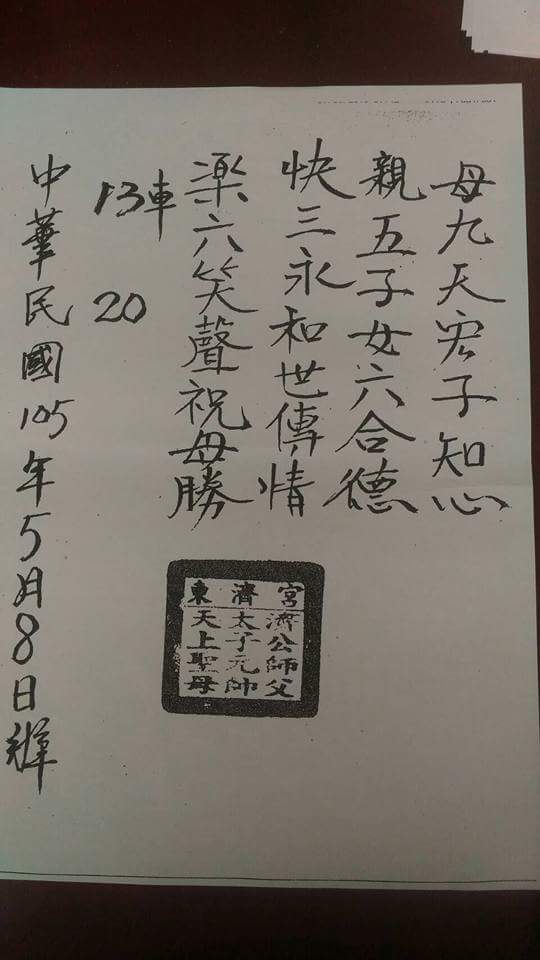 母九天宏子知心
親五子女六合德
快三永和世傳情
楽六笑聲祝母勝
13車 20
中華民國105年5月8日辦
東濟宮
濟公師父
太子元帥
天上聖母